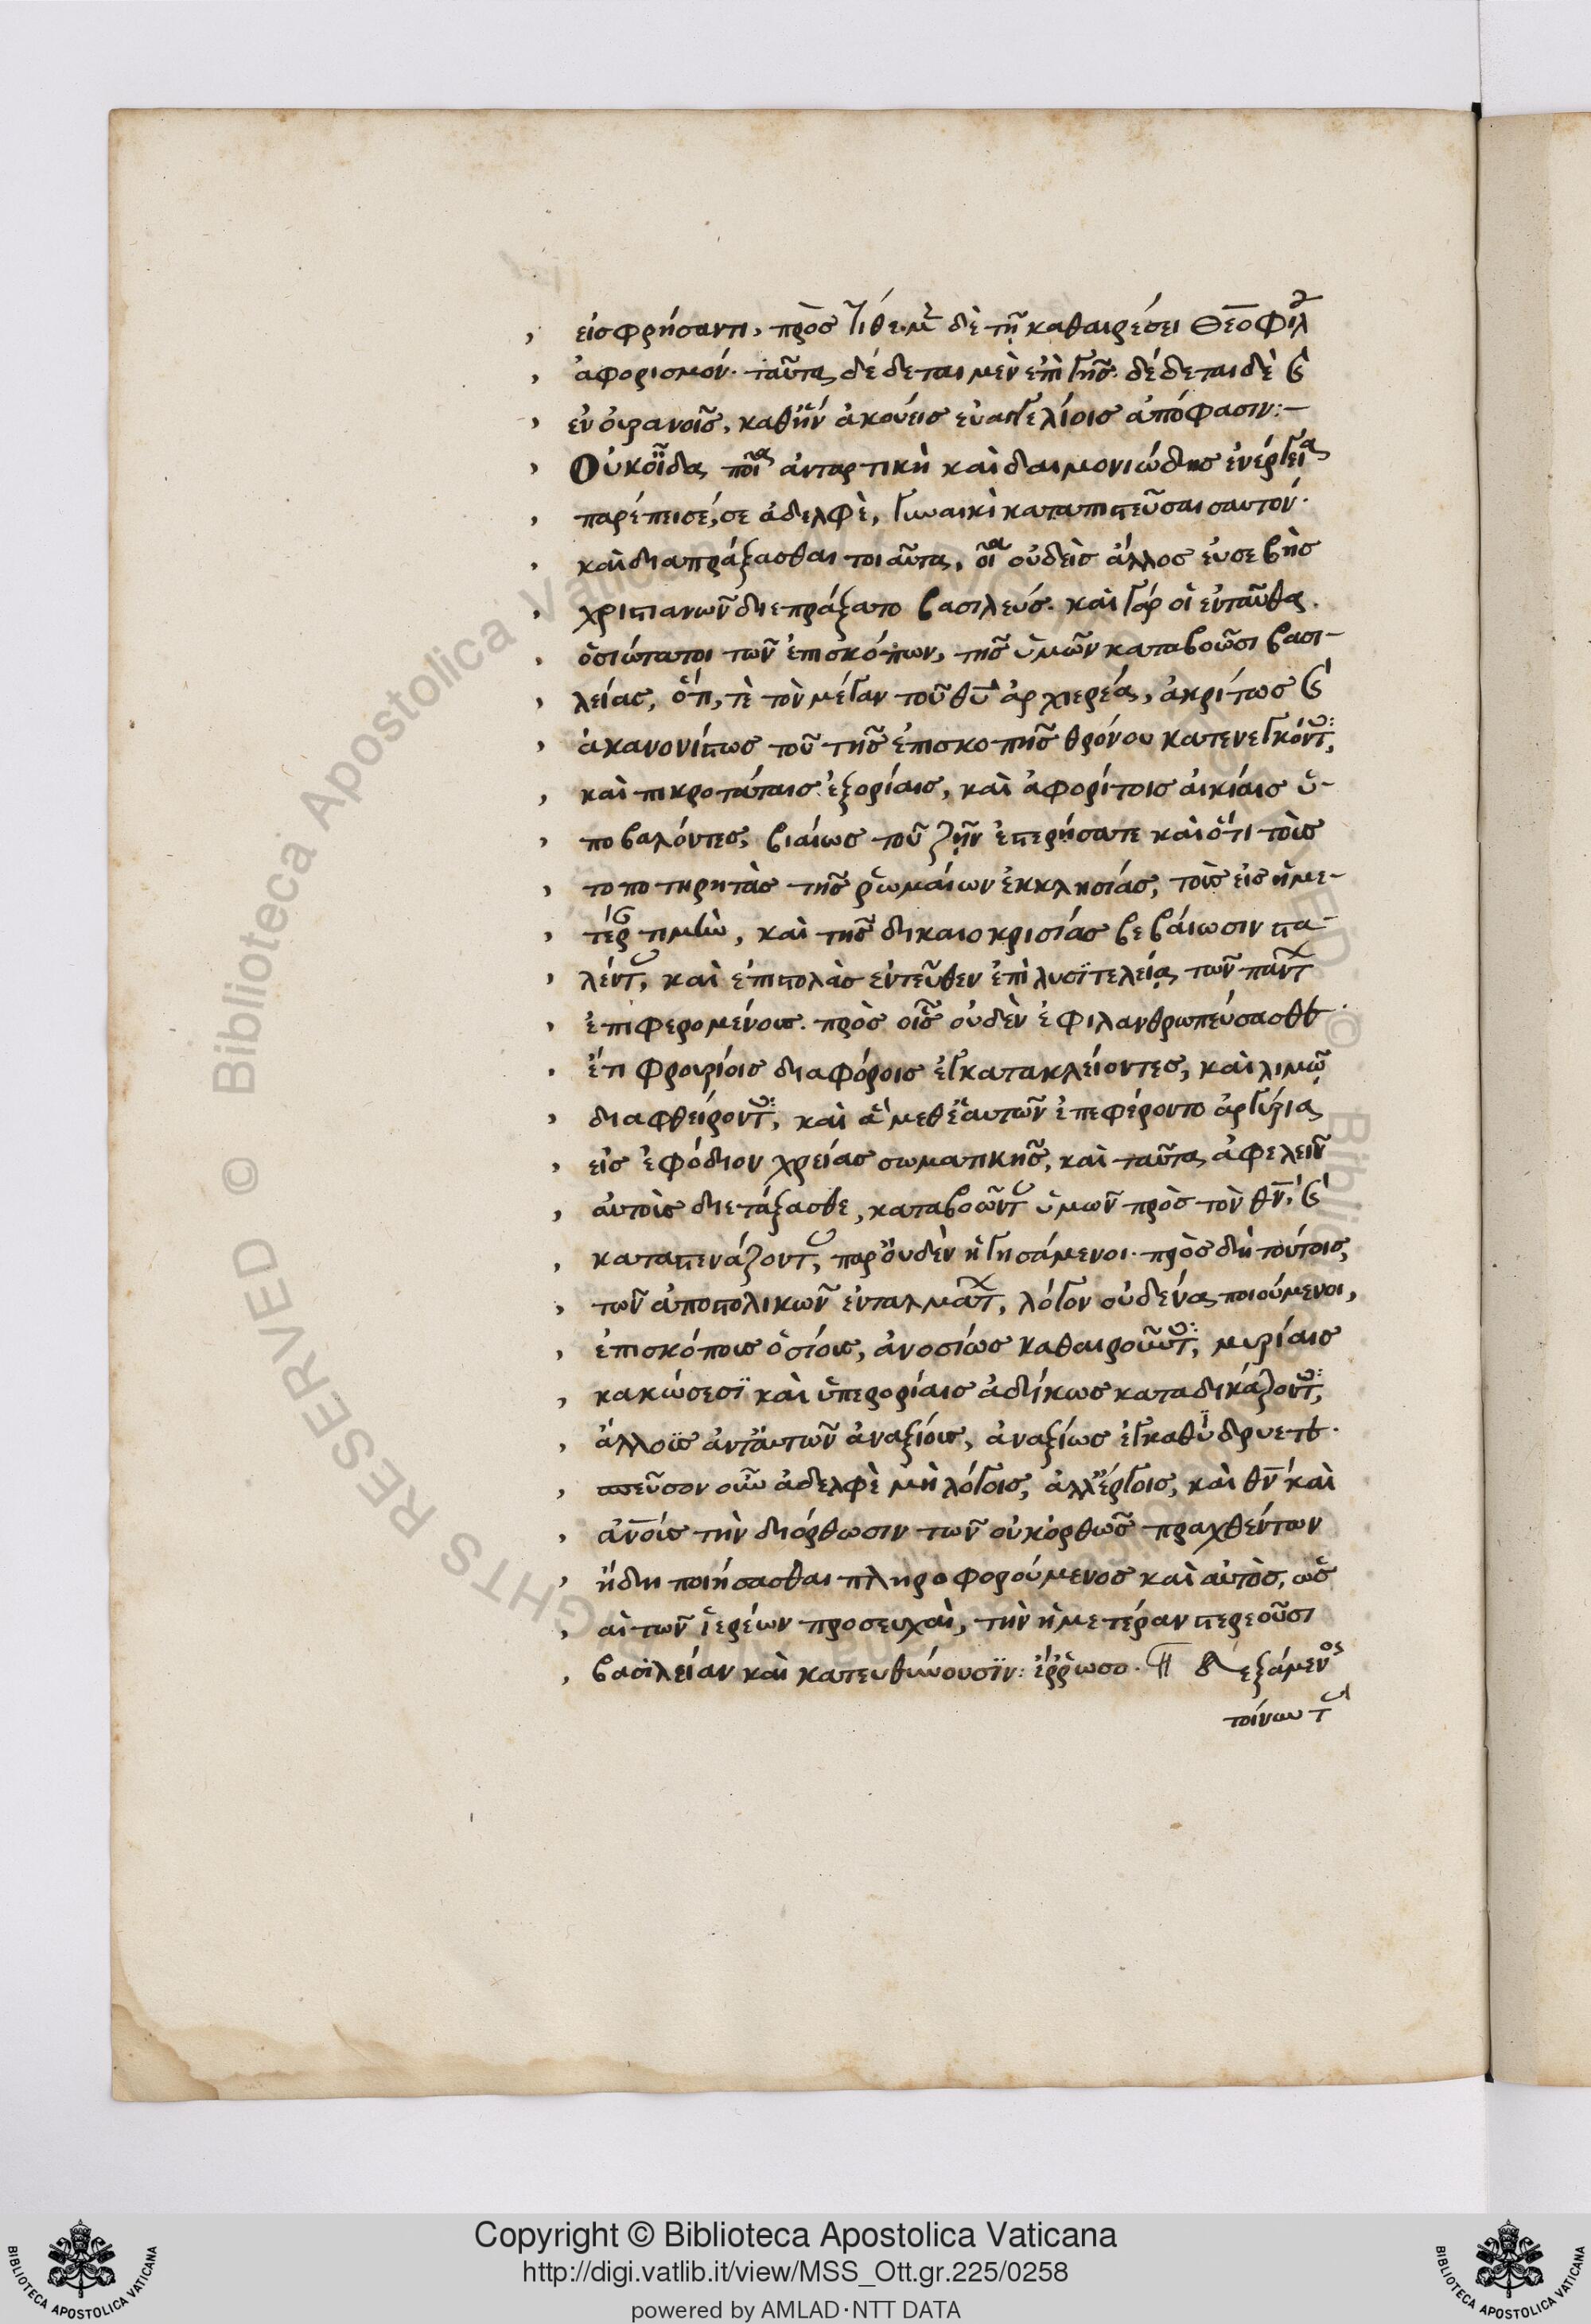 εἰσφρήσαντι, πρὸς τίθημι δὲ τῇ καθαιρέσει Θεοφίλ
ἀφορισμόν. ταῦτα δέδεται μὲν ἐπὶ γῆς. δέδεται δὲ καὶ
ἐν οὐρανοῖς, καθ' ἣν ἀκούεις εὐαγγελίοις ἀπόφασιν:–
Οὐκ οἶδα ποία ἀνταρτικὴ καὶ δαιμονιώδης ἐνέργεια
παρέπεισέ, σε ἀδελφὲ, γυναικὶ καταπιστεῦσαι σαυτόν.
καὶ διαπράξασθαι τοιαῦτα, οἷα οὐδεὶς ἄλλος εὐσεβὴς
χριστιανῶν διεπράξατο βασιλεύς. καὶ γὰρ οἱ ἐνταῦθα.
ὁσιώτατοι τῶν ἐπισκόπων, τῆς ὑμῶν καταβοῶσι βασι-
λείας, ὅτι, τὲ τὸν μέγαν τοῦ θῦ ἀρχιερέα, ἀκρίτως καὶ
ἀκανονίστως τοῦ τῆς ἐπισκοπῆς θρόνου κατενεγκόντες,
καὶ πικροτάταις ἐξορίαις, καὶ ἀφορίτοις αἰκίαις ὑ-
ποβαλόντες, βιαίως τοῦ ζῆν ἐστερήσατε καὶ ὅτι τοὺς
τοποτηρητὰς τῆς ῥωμαίων ἐκκλησίας, τοὺς εἰς ἡμε-
τέραν τιμὴν, καὶ τῆς δικαιοκρισίας βεβαίωσιν στα-
λέντας, καὶ ἐπιστολὰς ἐντεῦθεν ἐπὶ λυσϊτελείᾳ τῶν πάντων
ἐπιφερομένους. πρὸς οἷς οὐδὲν ἐφιλανθρωπεύσασθε
ἔτι φρουρίοις διαφόροις ἐγκατακλείοντες, καὶ λιμῷ
διαφθείροντες, καὶ ἃ μεθ' ἑαυτῶν ἐπεφέροντο ἀργύρια
εἰς ἐφόδιον χρείας σωματικῆς, καὶ ταῦτα ἀφελεῖν
αὐτοὺς διετάξασθε, καταβοῶντας ὑμῶν πρὸς τὸν θν̅, καὶ
καταστενάζοντας, παρ' οὐδὲν ἡγησάμενοι. πρὸς δὴ τούτοις,
τῶν ἀποστολικῶν ἐνταλμάτων, λόγον οὐδένα ποιούμενοι,
ἐπισκόπους ὁσίους, ἀνοσίως καθαιροῦντες, μυρίαις
κακώσεσϊ καὶ ὑπερορίαις ἀδίκως καταδικάζοντες,
ἄλλους ἀντ' αὐτῶν ἀναξίους, ἀναξίως ἐγκαθϊδρυετε.
σπεῦσον οὖν ἀδελφὲ μὴ λόγοις, ἀλλ' ἔργοις, καὶ θν̅ καὶ
ἀν̅οις τὴν διόρθωσιν τῶν οὐκ ὀρθῶς πραχθέντων
ἤδη ποιήσασθαι πληροφορούμενος καὶ αὐτὸς, ὡς
αἱ τῶν ἱερέων προσευχαὶ, τὴν ἡμετέραν στερεοῦσι
βασϊλείαν καὶ κατευθύνουσϊν: ἔρρωσο. ¶ δεξάμενος
τοίνυν τὴν